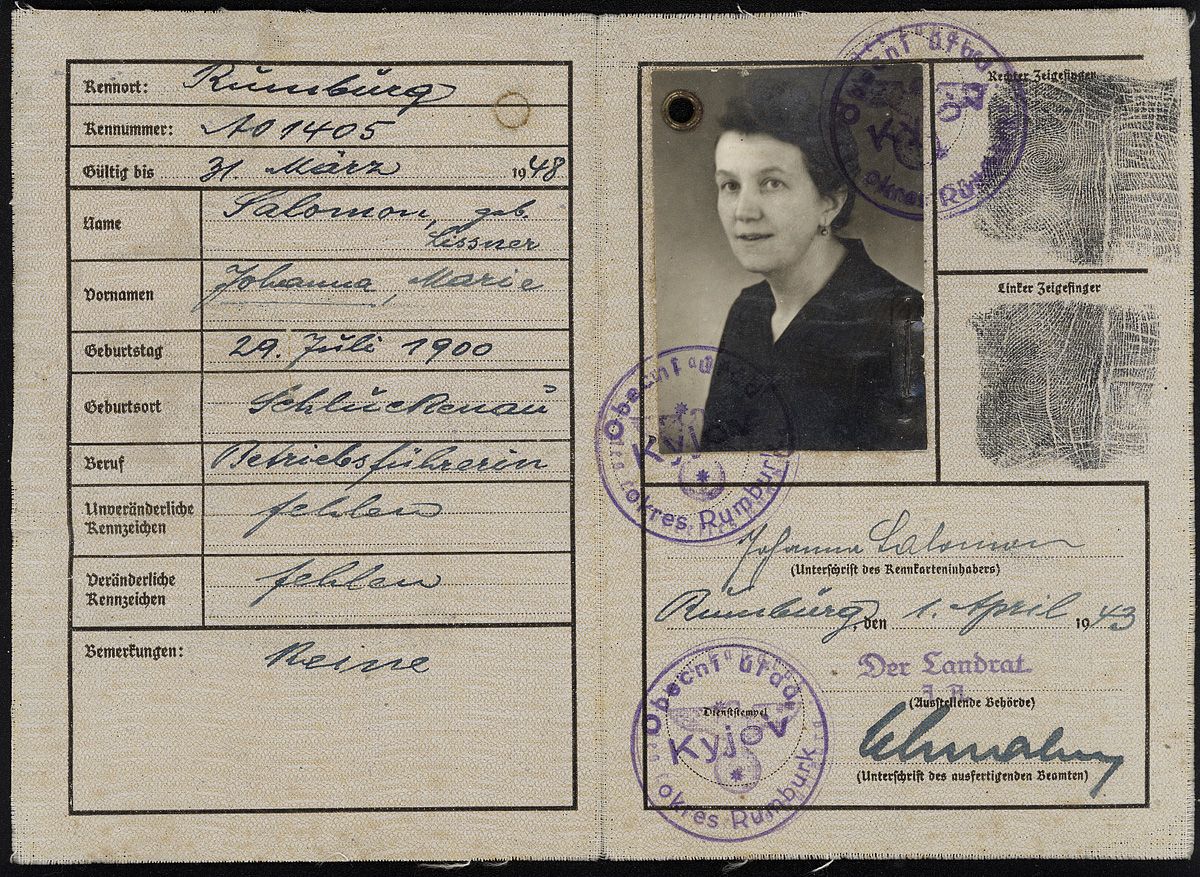 Kennort: Rumburg
Kennummer: A01405
Gültig bis 31. März 1948
Name Salomon, geb.
Lissner
Vornamen Johanna, Marie
Geburtstag 29. Juli 1900
Geburtsort Schluckenau
Beruf Betriebsführerin
Unveränderliche
Kennzeichen fehlen
Veränderliche
Kennzeichen fehlen
Bemerkungen: Keine
Obecní úřad
Kyjov
okres Rumburk
Rechter Zeigefinger
Linker Zeigefinger
Obecní úřad
Kyjov
okres Rumburk
Johanna Salomon
(Unterschrift des Kennkarteninhabers)
Rumburg, den 1. April 1943
Der Landrat
(Ausstellende Behörde)
Obecní úřad
Dienststempel
Kyjov
okres Rumburk
(Unterschrift des ausfertigenden Beamten)